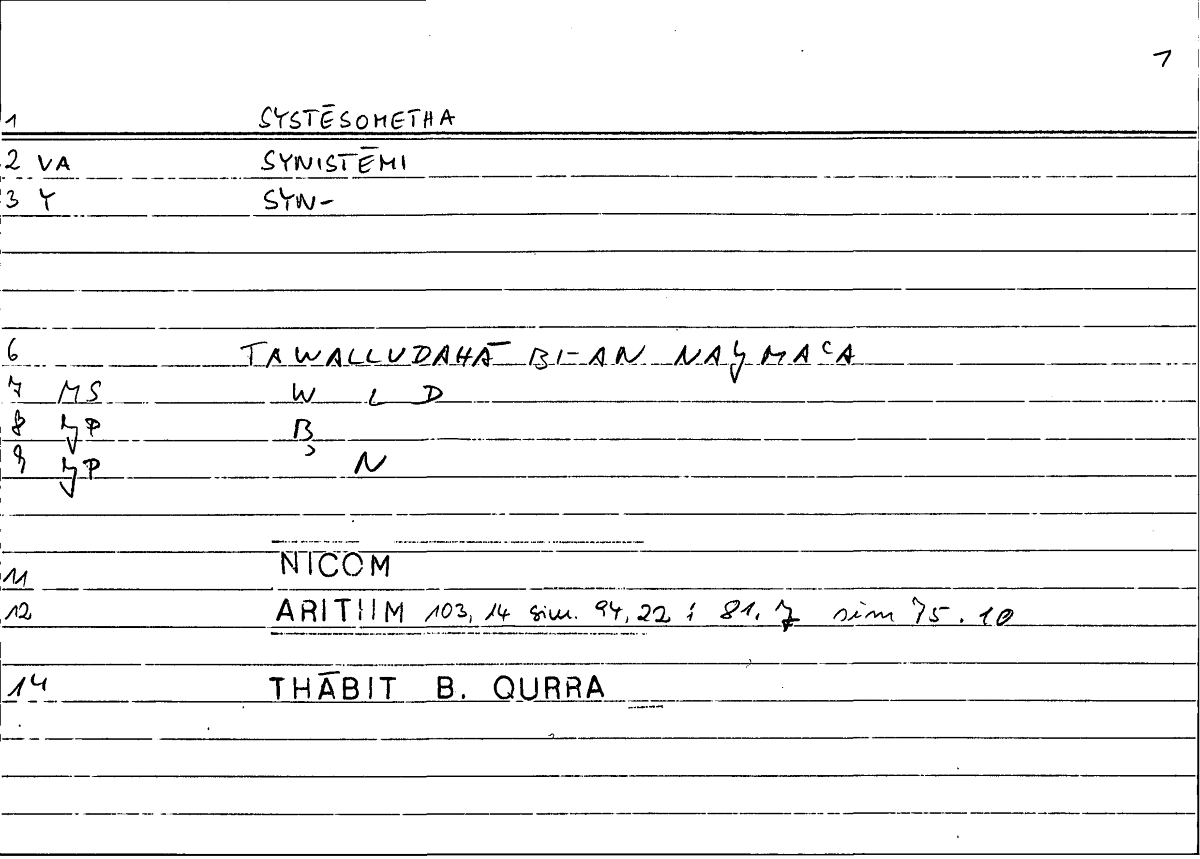 1
1 SYSTĒSOMETHA
2 VA SYNISTĒMI
3 Y SYN-
6 TAWALLUDAHĀ BI-AN NAŊMAʿA
7 MS W L D
8 ŊP B
9 ŊP ʾN
11 NICOM
12 ARITHM 103, 14 sim. 94, 22 ; 81, 7 sim 75.10
14 THĀBIT B. QURRA